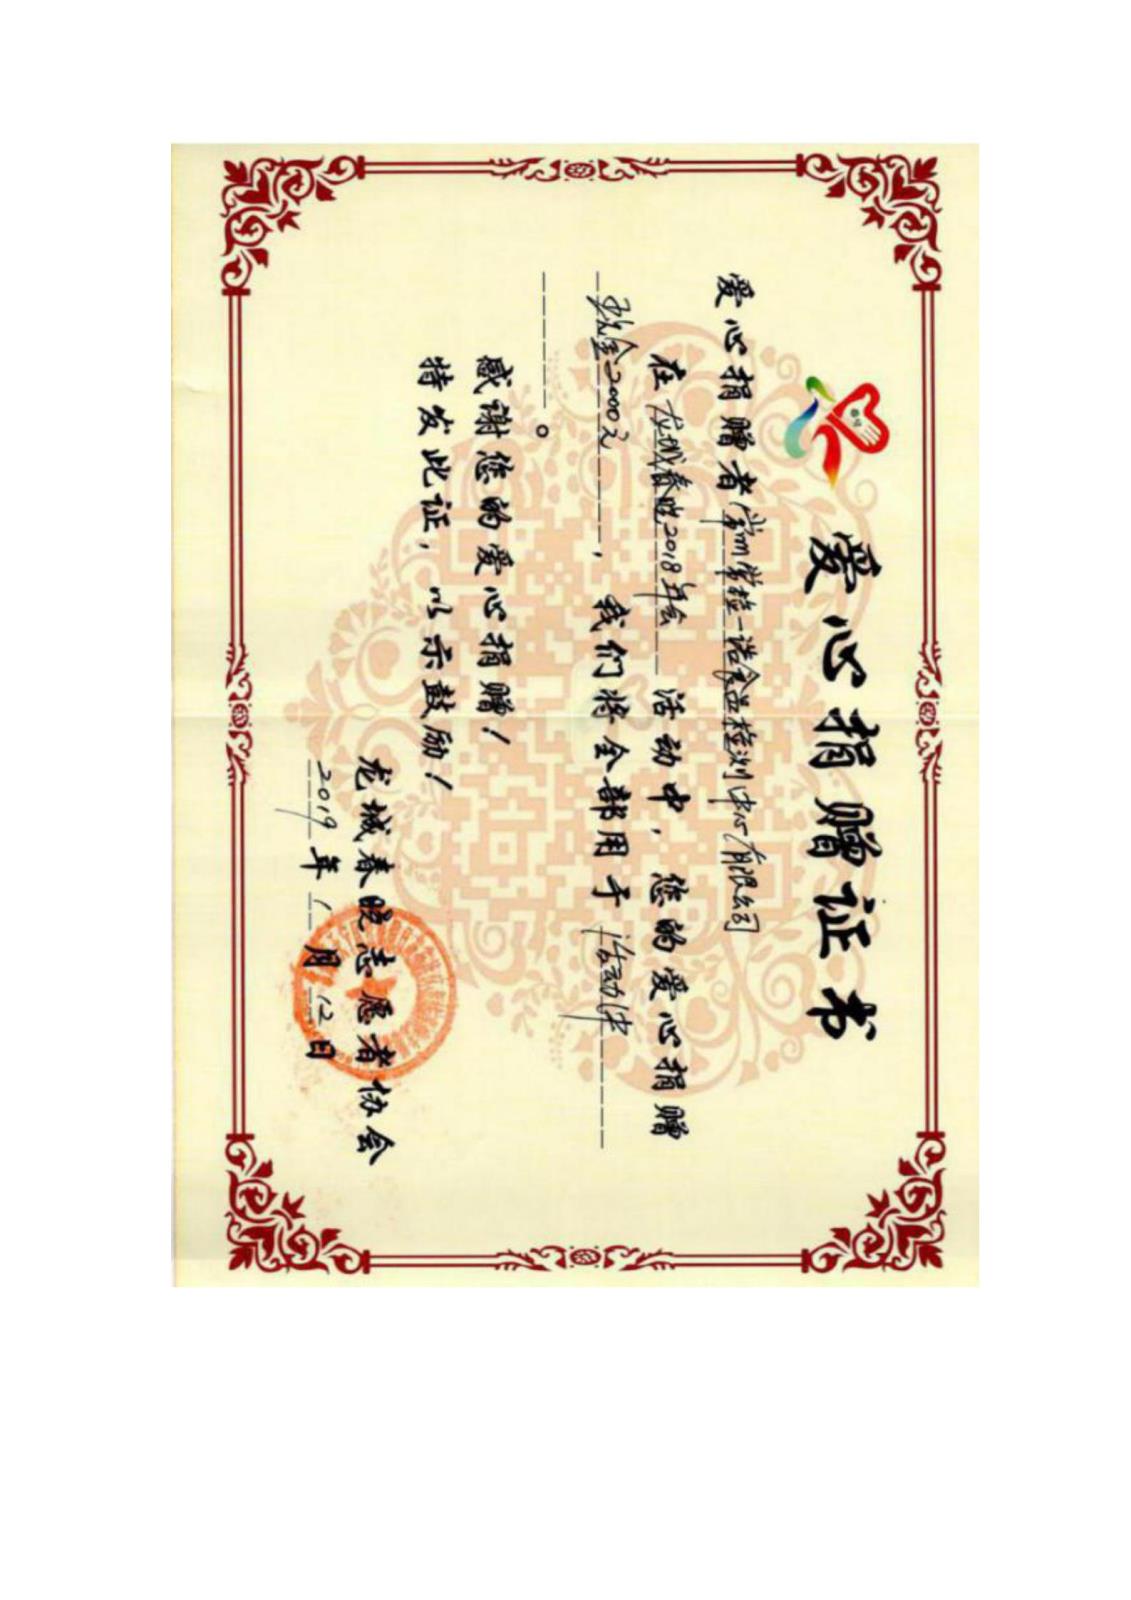 爱心捐赠证书
爱心捐赠者常州常检一诺食品检测中心有限公司
在龙城春晚2018年会活动中，您的爱心捐赠
现金2000元，我们将全部用于活动中
。
感谢您的爱心捐赠！
特发此证，以示鼓励！
龙城春晚志愿者协会
2019年1月12日